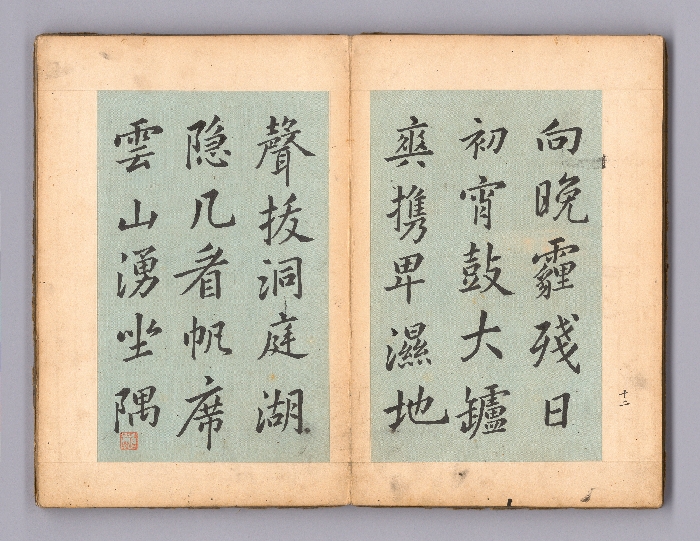 向晚霾殘日
初宵鼓大鑪
爽攜卑濕地
聲拔洞庭湖
隐几看帆席
雲山湧坐隅
十二